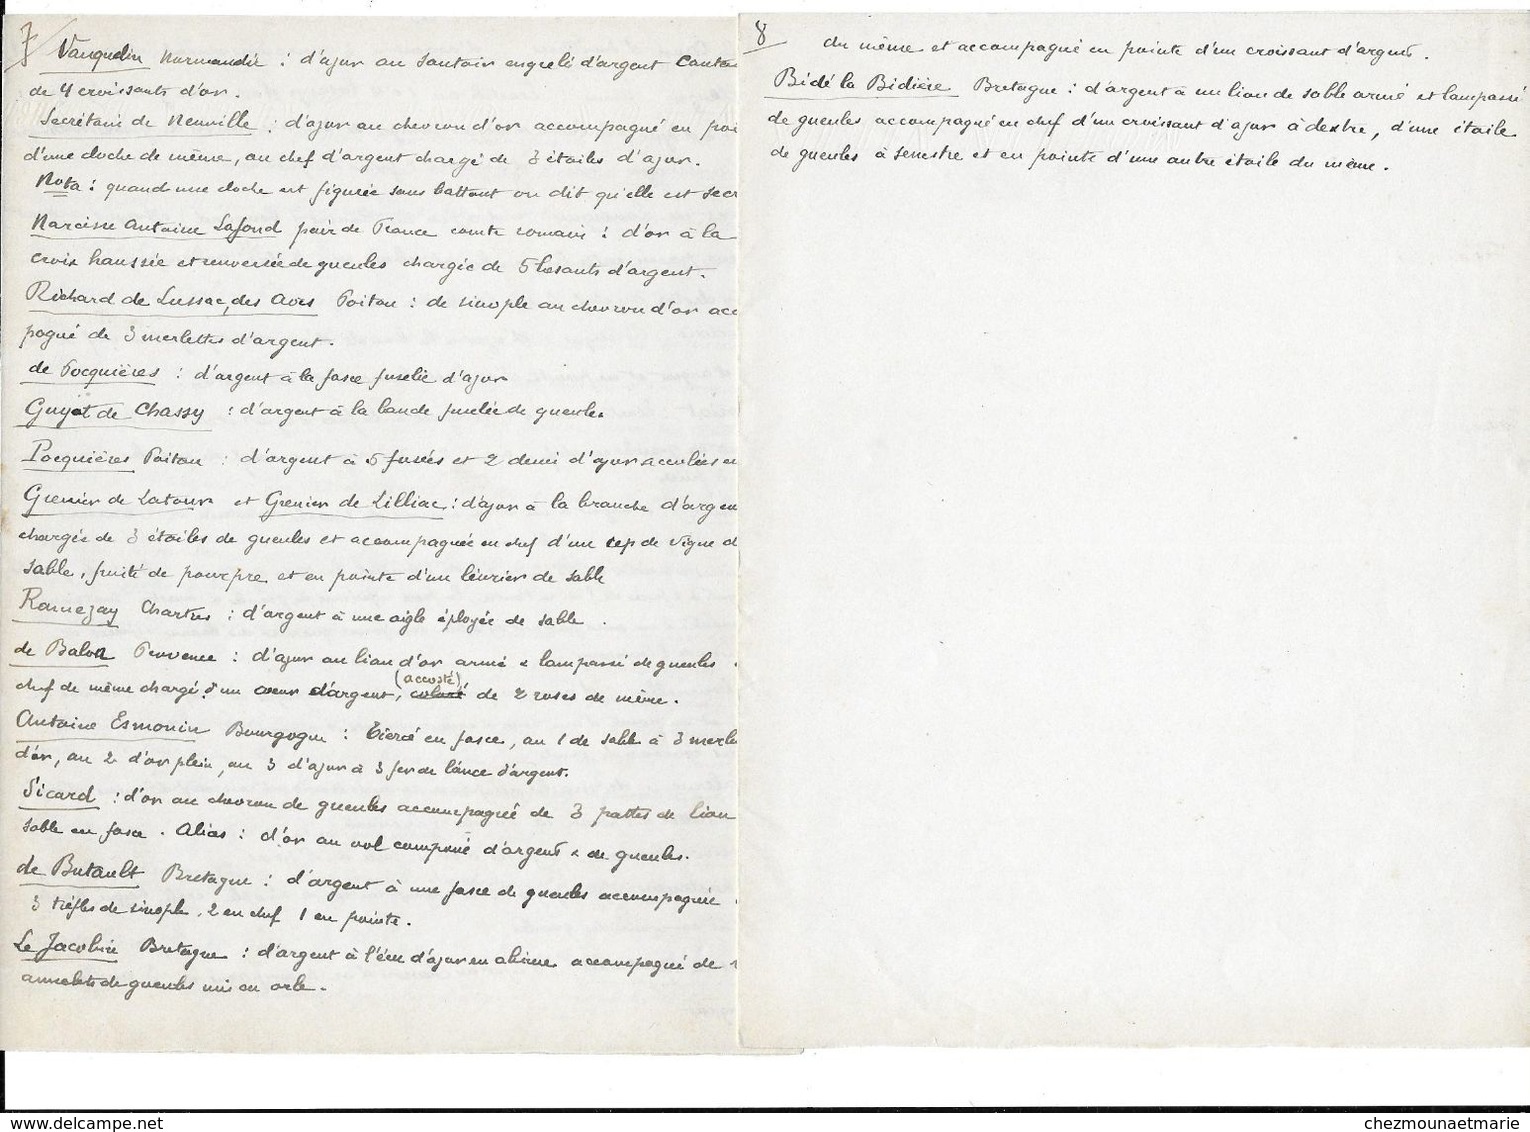 7
Vauquelin Normandie : d'azur au sautoir engrelé d'argent canto
de 4 croissants d'or.
Secrétain de Neuville : d'azur au chevron d'or accompagné en poi
d'une cloche de même, au chef d'argent chargé de 3 étoiles d'azur.
Nota : quand une cloche est figurée sans battant on dit qu'elle est
Narcisse Antoine Lafond pair de France comte romain : d'or à la
croix haussée et renversée de gueules chargée de 5 besants d'argent.
Richard de Lussac, des Aves Poitou : de sinople au chevron d'or acc
pagné de 3 merlettes d'argent.
de Pocquières : d'argent à la fasce fuselée d'azur
Guyot de Chassy : d'argent à la bande fuselée de gueules
Pocquières Poitou : d'argent à 5 fusées et 2 demi d'azur accolées en
Grenier de Latour et Grenier de Lilliac : d'azur à la branche d'argen
chargée de 3 étoiles de gueules et accompagnée en chef d'un cep de vigne d
sable, fruité de pourpre et en pointe d'un lévrier de sable
Ramezay Chartres : d'argent à une aigle éployée de sable.
de Balon Provence : d'azur au lion d'or armé & lampassé de gueules
(accosté)
chef de même chargé d'un cœur d'argent, de 2 roses de même.
Antoine Esmonin Bourgogne : tiercé en fasce, au 1 de sable à 3 merle
d'or, au 2 d'or plein, au 3 d'azur à 3 fer de lance d'argent.
Sicard : d'or au chevron de gueules accompagné de 3 pattes de lion
sable en fasce. Alias : d'or au vol componé d'argent & de gueules.
de Butault Bretagne : d'argent à une fasce de gueules accompagnée
3 trèfles de sinople, 2 en chef 1 en pointe.
Le Jacobin Bretagne : d'argent à l'écu d'azur en abîme accompagné de
annelets de gueules mis en orle.
8
du même et accompagné en pointe d'un croissant d'argent.
Bidé la Bidière Bretagne : d'argent à un lion de sable armé et lampassé
de gueules accompagné en chef d'un croissant d'azur à dextre, d'une étoile
de gueules à senestre et en pointe d'une autre étoile du même.
www.delcampe.net
chezmounaetmarie